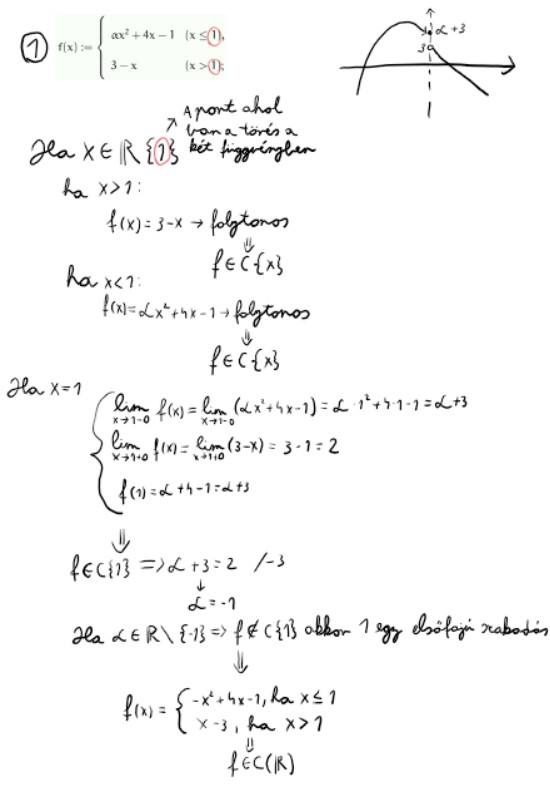 ① f(x) := { αx² + 4x − 1 (x ≤ 1),
3 − x (x > 1);
α+3
3
A pont ahol
van a törés a
két függvényben
Ha x ∈ ℝ{1}
ha x>1:
f(x) = 3-x → folytonos
⇓
f ∈ C{x}
ha x<1:
f(x)= αx²+4x-1 → folytonos
⇓
f ∈ C{x}
Ha x=1
{ lim x→1-0 f(x) = lim x→1-0 (αx²+4x-1) = α·1²+4·1-1 = α+3
lim x→1+0 f(x) = lim x→1+0 (3-x) = 3-1 = 2
f(1) = α+4-1 = α+3
⇓
f∈C{1} => α+3 = 2 /-3
↓
α = -1
Ha α∈ℝ\{-1} => f∉C{1} akkor 1 egy elsőfajú szakadás
⇓
f(x) = { -x²+4x-1, ha x≤1
x-3, ha x>1
⇓
f∈C(ℝ)